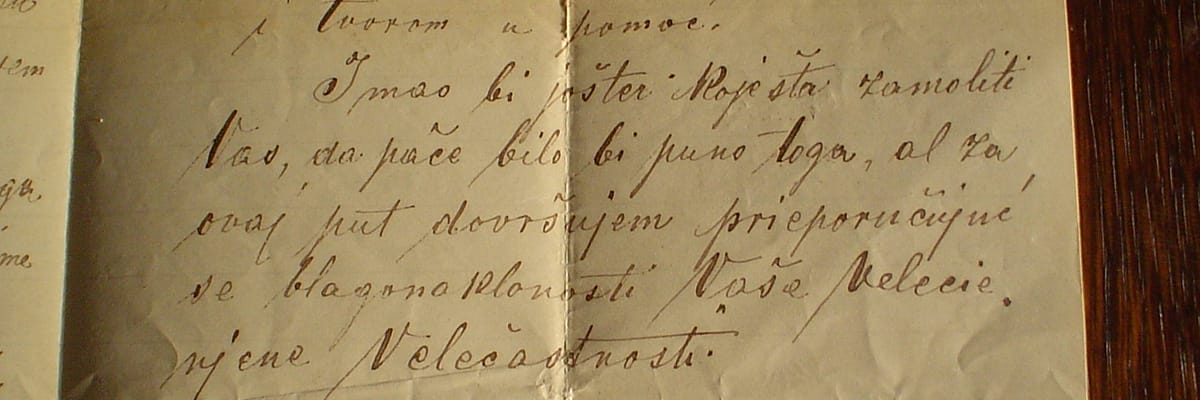 i tvorom u pomoć.
Imao bi jošter koješta zamoliti
Vas, da pače bilo bi puno toga, al za
ovaj put dovršujem prieporučujuć
se blagonaklonosti Vaše Velecie-
njene Velečastnosti.
tem
ga
me